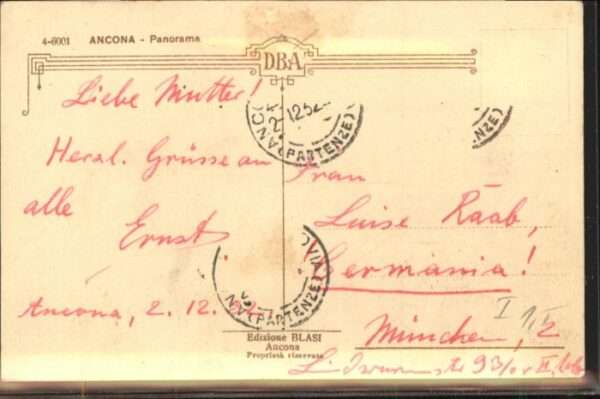 4-6001 ANCONA - Panorama
DBA
Liebe Mutter!
Herzl. Grüsse an
alle
Ernst.
Ancona, 2. 12.
Frau
Luise Raab,
Germania!
München, 2
93/0
ANCONA (PARTENZE)
2.12.52
NZE)
(PARTENZE)
OVIA
Edizione BLASI
Ancona
Proprietà riservata